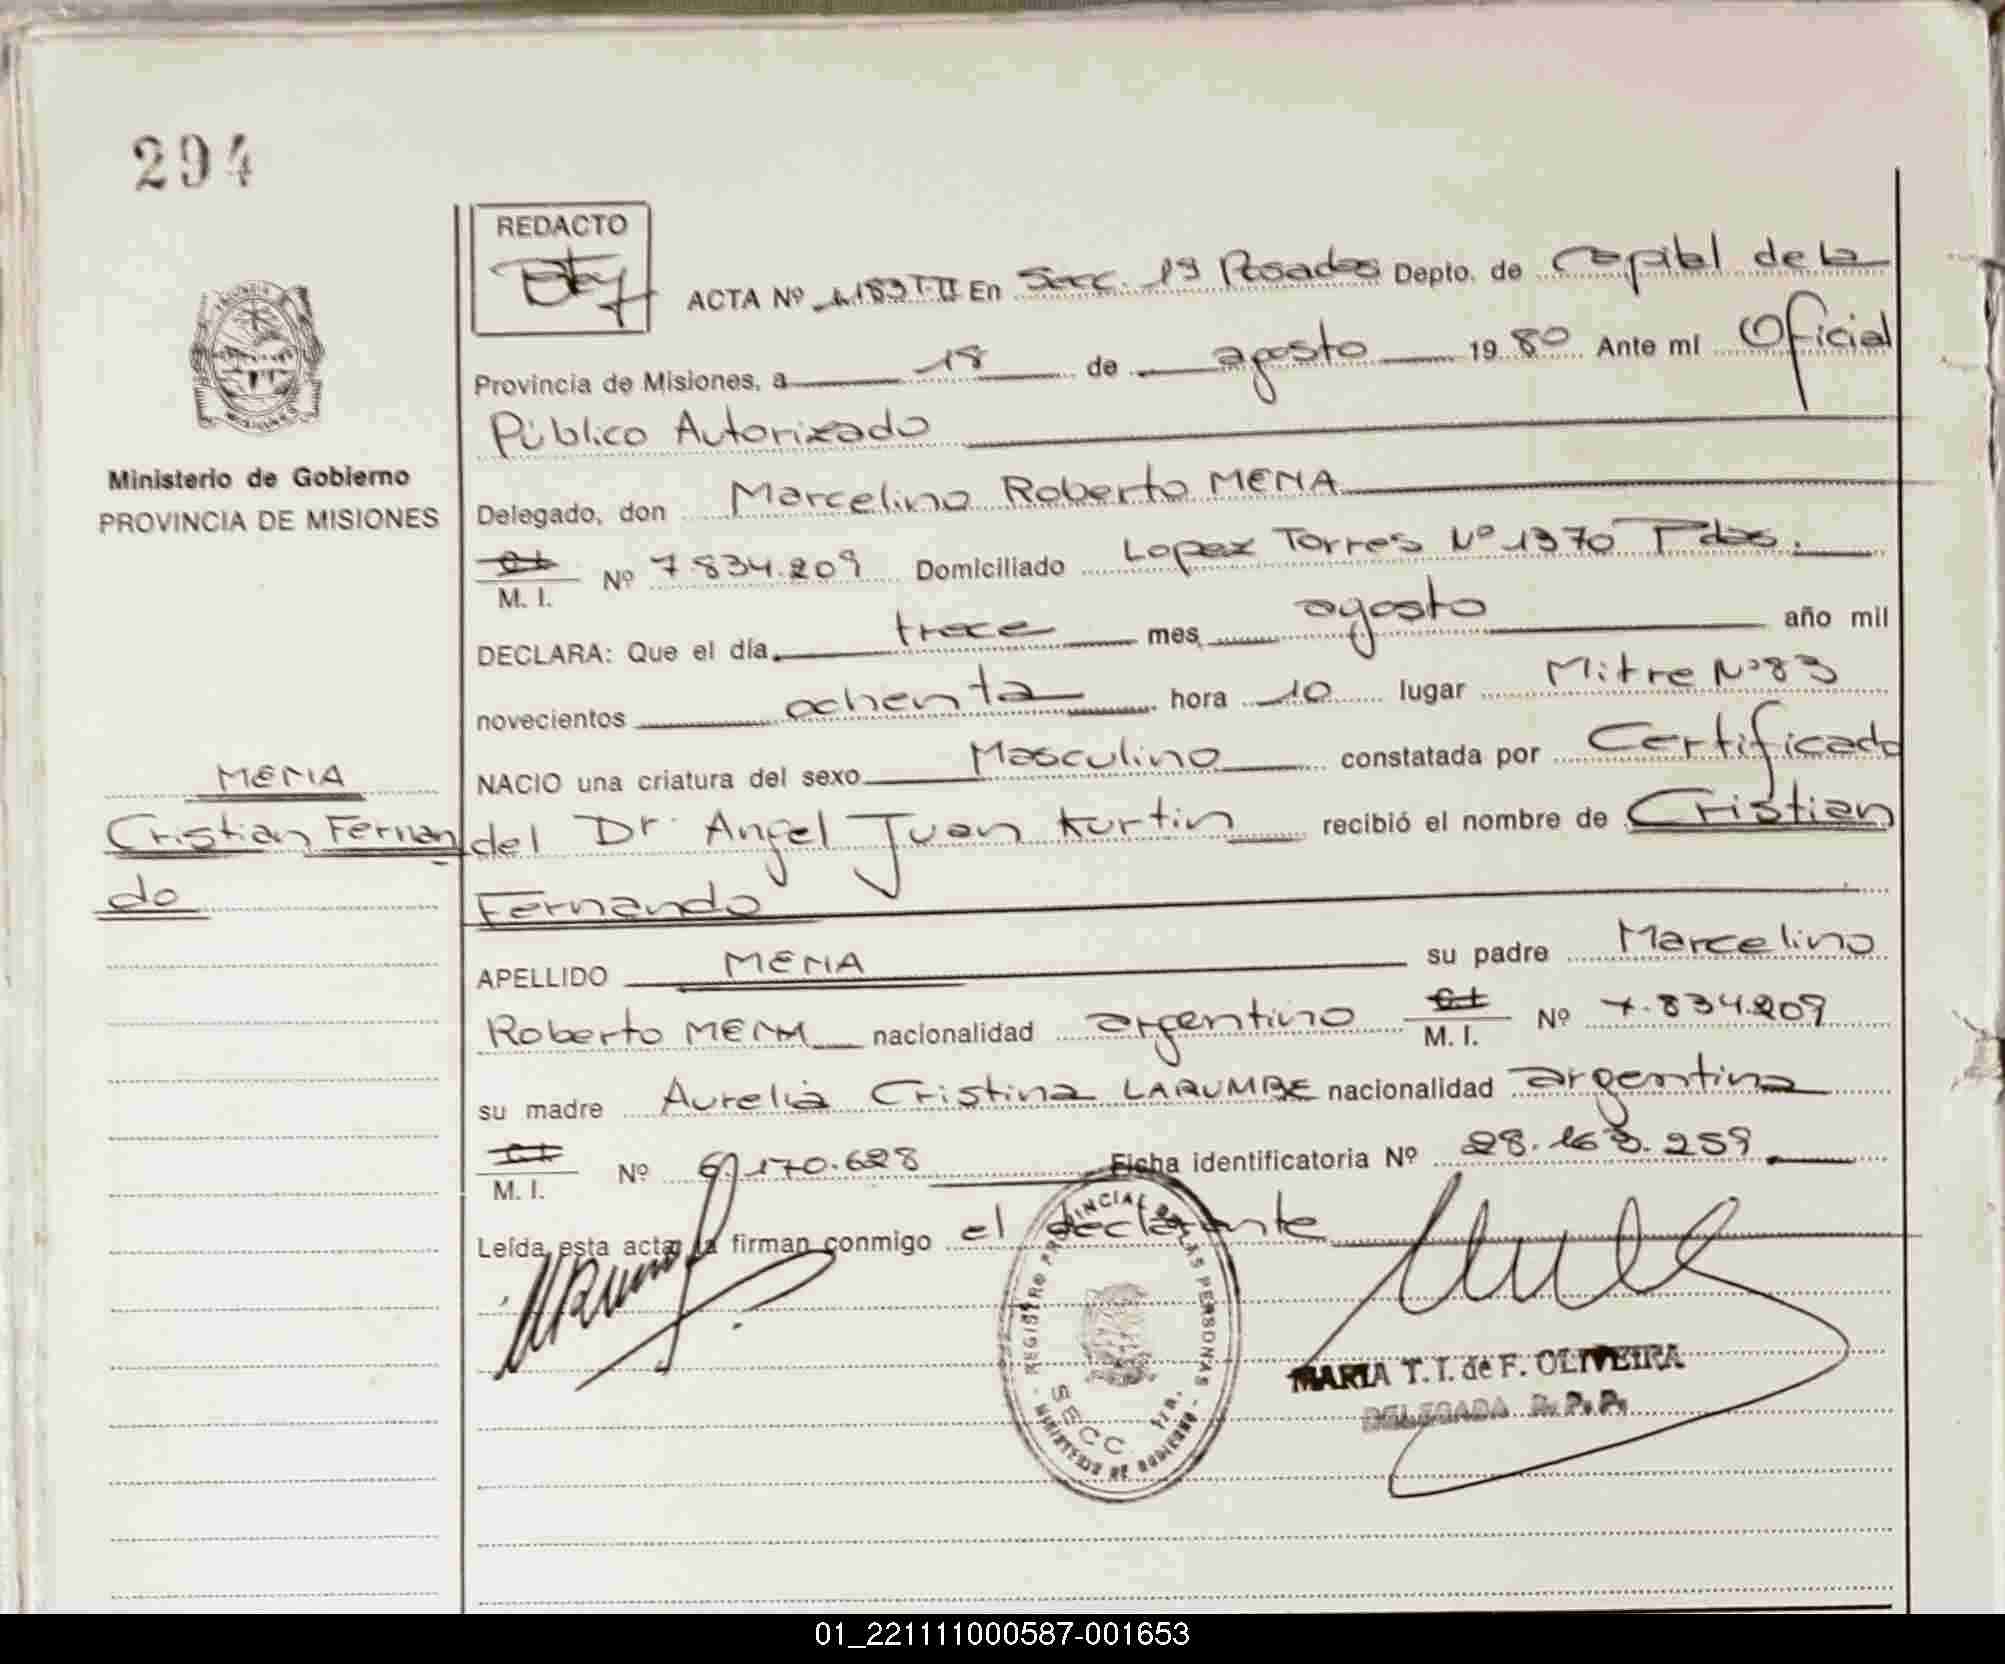 294
REDACTO
ACTA Nº 1183 T-II En Secc. 1ª Posadas Depto. de Capital de la
Provincia de Misiones, a 18 de agosto 1980 Ante mi Oficial
Público Autorizado
Ministerio de Gobierno
PROVINCIA DE MISIONES
Delegado, don Marcelino Roberto MENA
C.I.
M. I. Nº 7.834.209 Domiciliado Lopez Torres Nº 1370 Pdas.
DECLARA: Que el día trece mes agosto año mil
novecientos ochenta hora 10 lugar Mitre Nº 83
NACIO una criatura del sexo Masculino constatada por Certificado
MENA
Cristian Fernan
do
del Dr. Angel Juan Kurtin recibió el nombre de Cristian
Fernando
APELLIDO MENA su padre Marcelino
Roberto MENA nacionalidad argentino C.I.
M. I. Nº 7.834.209
su madre Aurelia Cristina LARUMBE nacionalidad argentina
C.I.
M. I. Nº 6.170.628 Ficha identificatoria Nº 28.163.259
Leída esta acta, la firman conmigo el declarante
REGISTRO PROVINCIAL DE LAS PERSONAS
MINISTERIO DE GOBIERNO
SECC. 1ra.
MARIA T. I. de F. OLIVEIRA
DELEGADA R. P. P.
01_221111000587-001653